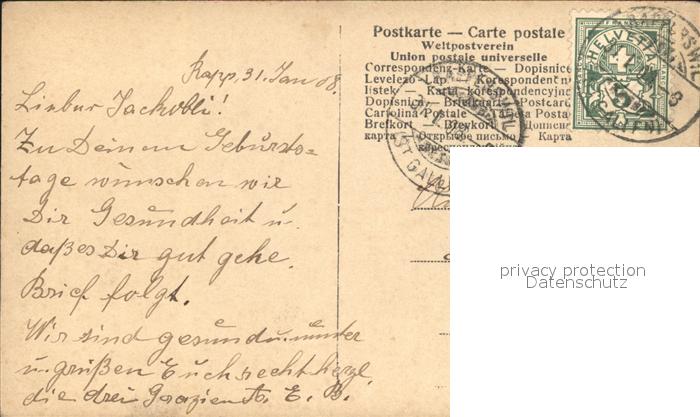 Rapp. 31. Jan 08.
Lieber Jackobli!
Zu Deinem Geburts=
tage wünschen wir
Dir Gesundheit u.
daß es Dir gut gehe.
Brief folgt.
Wir sind gesund u. munter
u. grüßen Euch recht herzl.
die drei Grazien A. E. B.
Postkarte — Carte postale
Weltpostverein
Union postale universelle
Correspondenz-Karte — Dopisnice
Levelező-Lap — Korespondenč
listek — Karta korespondencyjna
Dopisnic — Briefkaart — Postcard
Cartolina Postale — Tarjeta Posta
Brefkort — Brevkort — Дописн
карта — Открытое письмо — Карта
HELVETIA
5
ST. GALLEN
privacy protection
Datenschutz